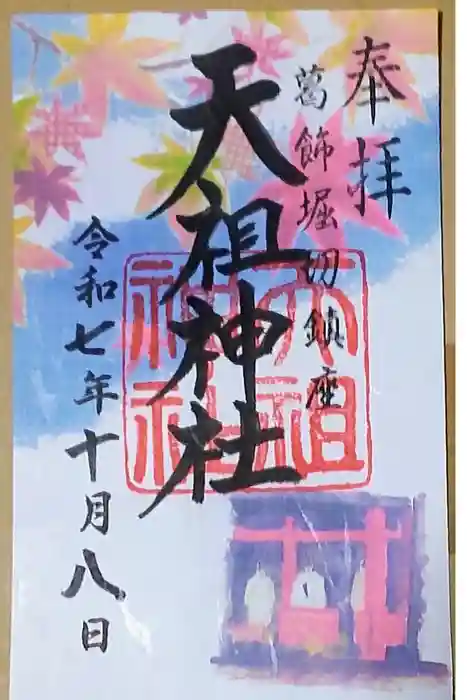 奉拝
葛飾堀切鎮座
天祖神社
天祖神社
令和七年十月八日